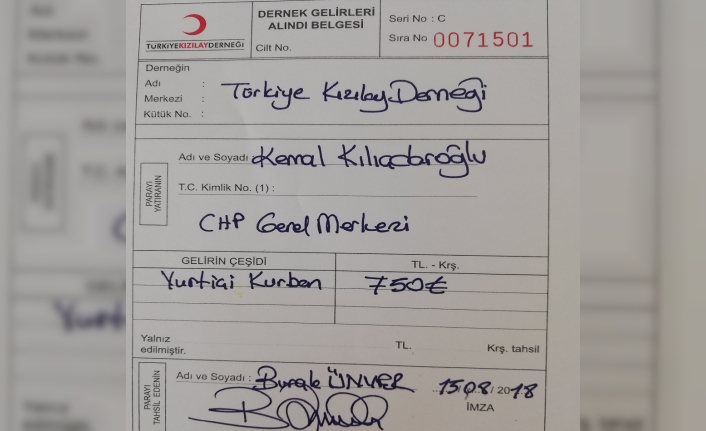 DERNEK GELİRLERİ
ALINDI BELGESİ
Cilt No.
Seri No : C
Sıra No 0071501
TÜRKİYEKIZILAYDERNEĞİ
Derneğin
Adı :
Merkezi :
Kütük No. :
Türkiye Kızılay Derneği
PARAYI
YATIRANIN
Adı ve Soyadı Kemal Kılıçdaroğlu
T.C. Kimlik No. (1) :
CHP Genel Merkezi
GELİRİN ÇEŞİDİ
TL. - Krş.
Yurtiçi Kurban 750₺
Yalnız TL. Krş. tahsil
edilmiştir.
PARAYI
TAHSİL EDENİN
Adı ve Soyadı : Burak ÜNVER 15/08/2018
İMZA